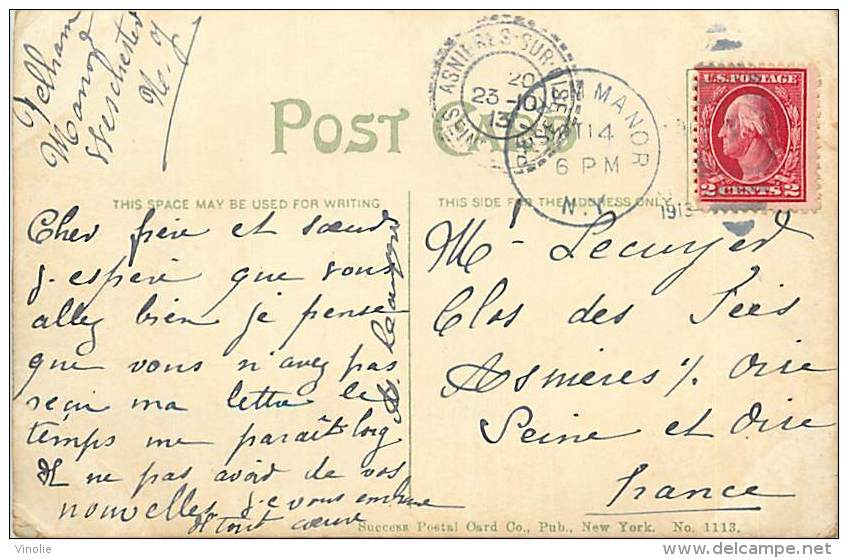 Pelham
Manor
Westchester
N. Y
POST CARD
ASNIÈRES-SUR-OISE
20
23-10
13
SEINE
PELHAM MANOR
OCT 14
6 PM
N.Y.
1913
U.S. POSTAGE
2 CENTS 2
THIS SPACE MAY BE USED FOR WRITING
THIS SIDE FOR THE ADDRESS ONLY
Cher frère et sœur
j'espère que vous
allez bien je pense
que vous n'avez pas
reçu ma lettre le
temps me parait long
de ne pas avoir de vos
nouvelles je vous embrasse
de tout cœur
Mr Lecuyer
Clos des Fées
Asnières s/ Oise
Seine et Oise
France
Success Postal Card Co., Pub., New York. No. 1113.
Vinolie
delcampe.net